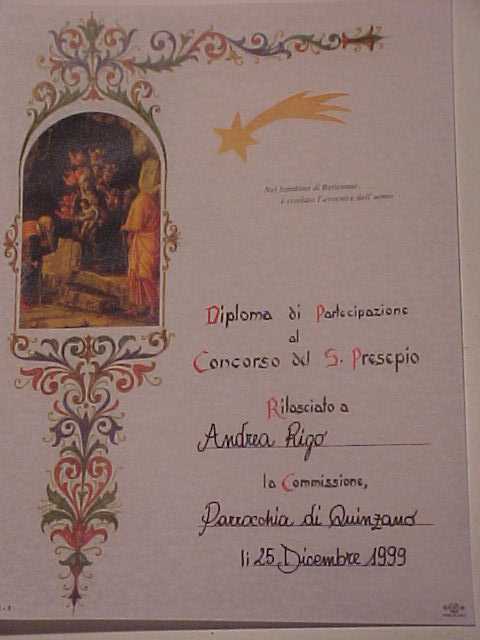 Nel bambino di Betlemme,
è rivelato l'avvenire dell'uomo
Diploma di Partecipazione
al
Concorso del S. Presepio
Rilasciato a
Andrea Rigo
la Commissione,
Parrocchia di Quinzano
li 25 Dicembre 1999